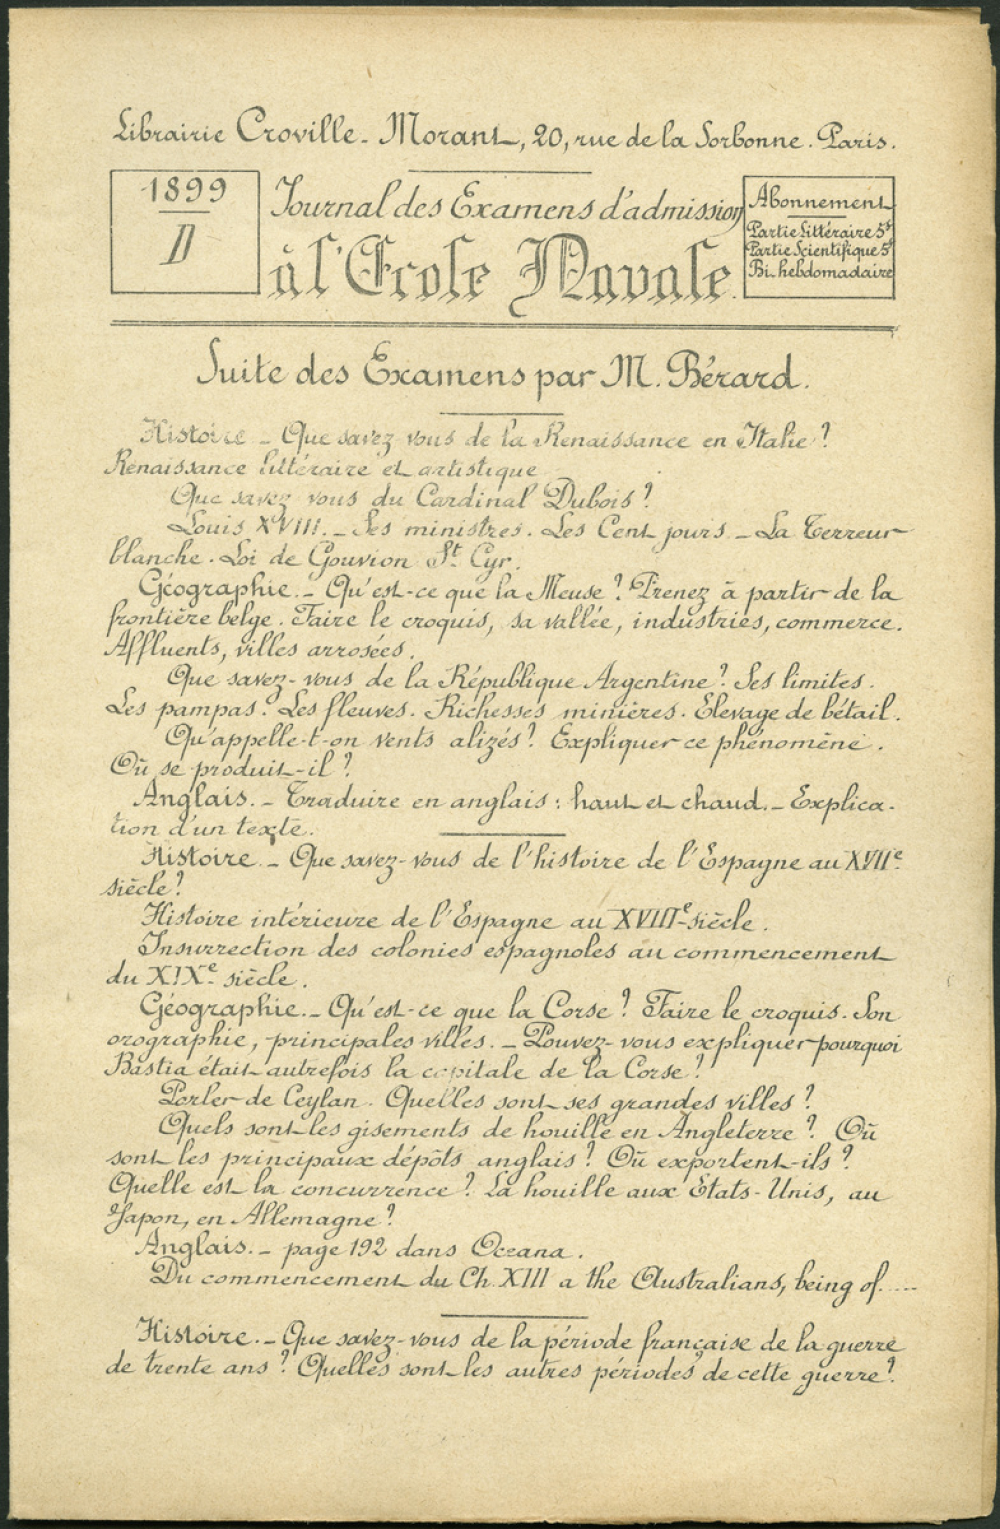 Librairie Croville-Morant, 20, rue de la Sorbonne. Paris.
1899
D
Journal des Examens d'admission
à l'École Navale.
Abonnement
Partie Littéraire 5f
Partie Scientifique 5f
Bi-hebdomadaire
Suite des Examens par M. Bérard.
Histoire - Que savez-vous de la Renaissance en Italie?
Renaissance littéraire et artistique
Que savez vous du Cardinal Dubois?
Louis XVIII. - Ses ministres. Les Cent jours - La Terreur
blanche. Loi de Gouvion St Cyr.
Géographie. - Qu'est-ce que la Meuse? Prenez à partir de la
frontière belge. Faire le croquis, sa vallée, industries, commerce.
Affluents, villes arrosées.
Que savez-vous de la République Argentine? Ses limites.
Les pampas. Les fleuves. Richesses minières. Elevage de bétail.
Qu'appelle-t-on vents alizés? Expliquer ce phénomène.
Où se produit-il?
Anglais. - Traduire en anglais: haut et chaud. - Explica-
tion d'un texte.
Histoire. - Que savez-vous de l'histoire de l'Espagne au XVIIe
siècle?
Histoire intérieure de l'Espagne au XVIIIe siècle.
Insurrection des colonies espagnoles au commencement
du XIXe siècle.
Géographie. - Qu'est-ce que la Corse? Faire le croquis. Son
orographie, principales villes. - Pouvez-vous expliquer pourquoi
Bastia était autrefois la capitale de la Corse?
Parler de Ceylan. Quelles sont ses grandes villes?
Quels sont les gisements de houille en Angleterre? Où
sont les principaux dépôts anglais? Où exportent-ils?
Quelle est la concurrence? La houille aux Etats-Unis, au
Japon, en Allemagne?
Anglais. - page 192 dans Oceana.
Du commencement du Ch. XIII a the Australians, being of....
Histoire. - Que savez-vous de la période française de la guerre
de trente ans? Quelles sont les autres périodes de cette guerre?